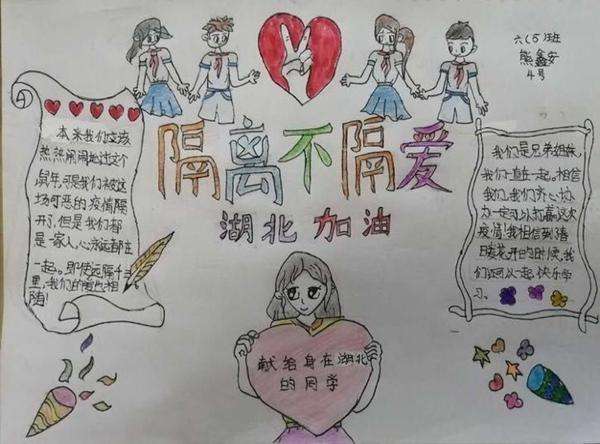 六(5)班
熊鑫安
4号
隔离不隔爱
湖北加油
本来我们应该
热热闹闹地过这个
鼠年,可是我们被这
场可恶的疫情隔
开了,但是我们都
是一家人,心永远都在
一起。即使远隔千
里,我们的也相
随!
我们是兄弟姐妹,
我们一直在一起。相信
我们,我们齐心协
力一定可以打赢这次
疫情!我相信到春
暖花开的时候,我
们还可以一起快乐学
习。
献给身在湖北
的同学